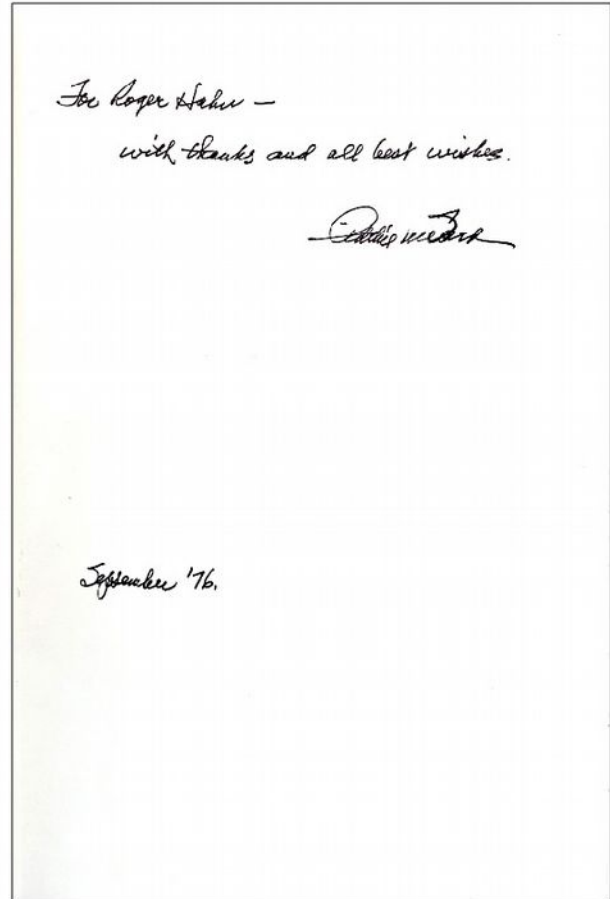 For Roger Hahn —
with thanks and all best wishes.
September '76.